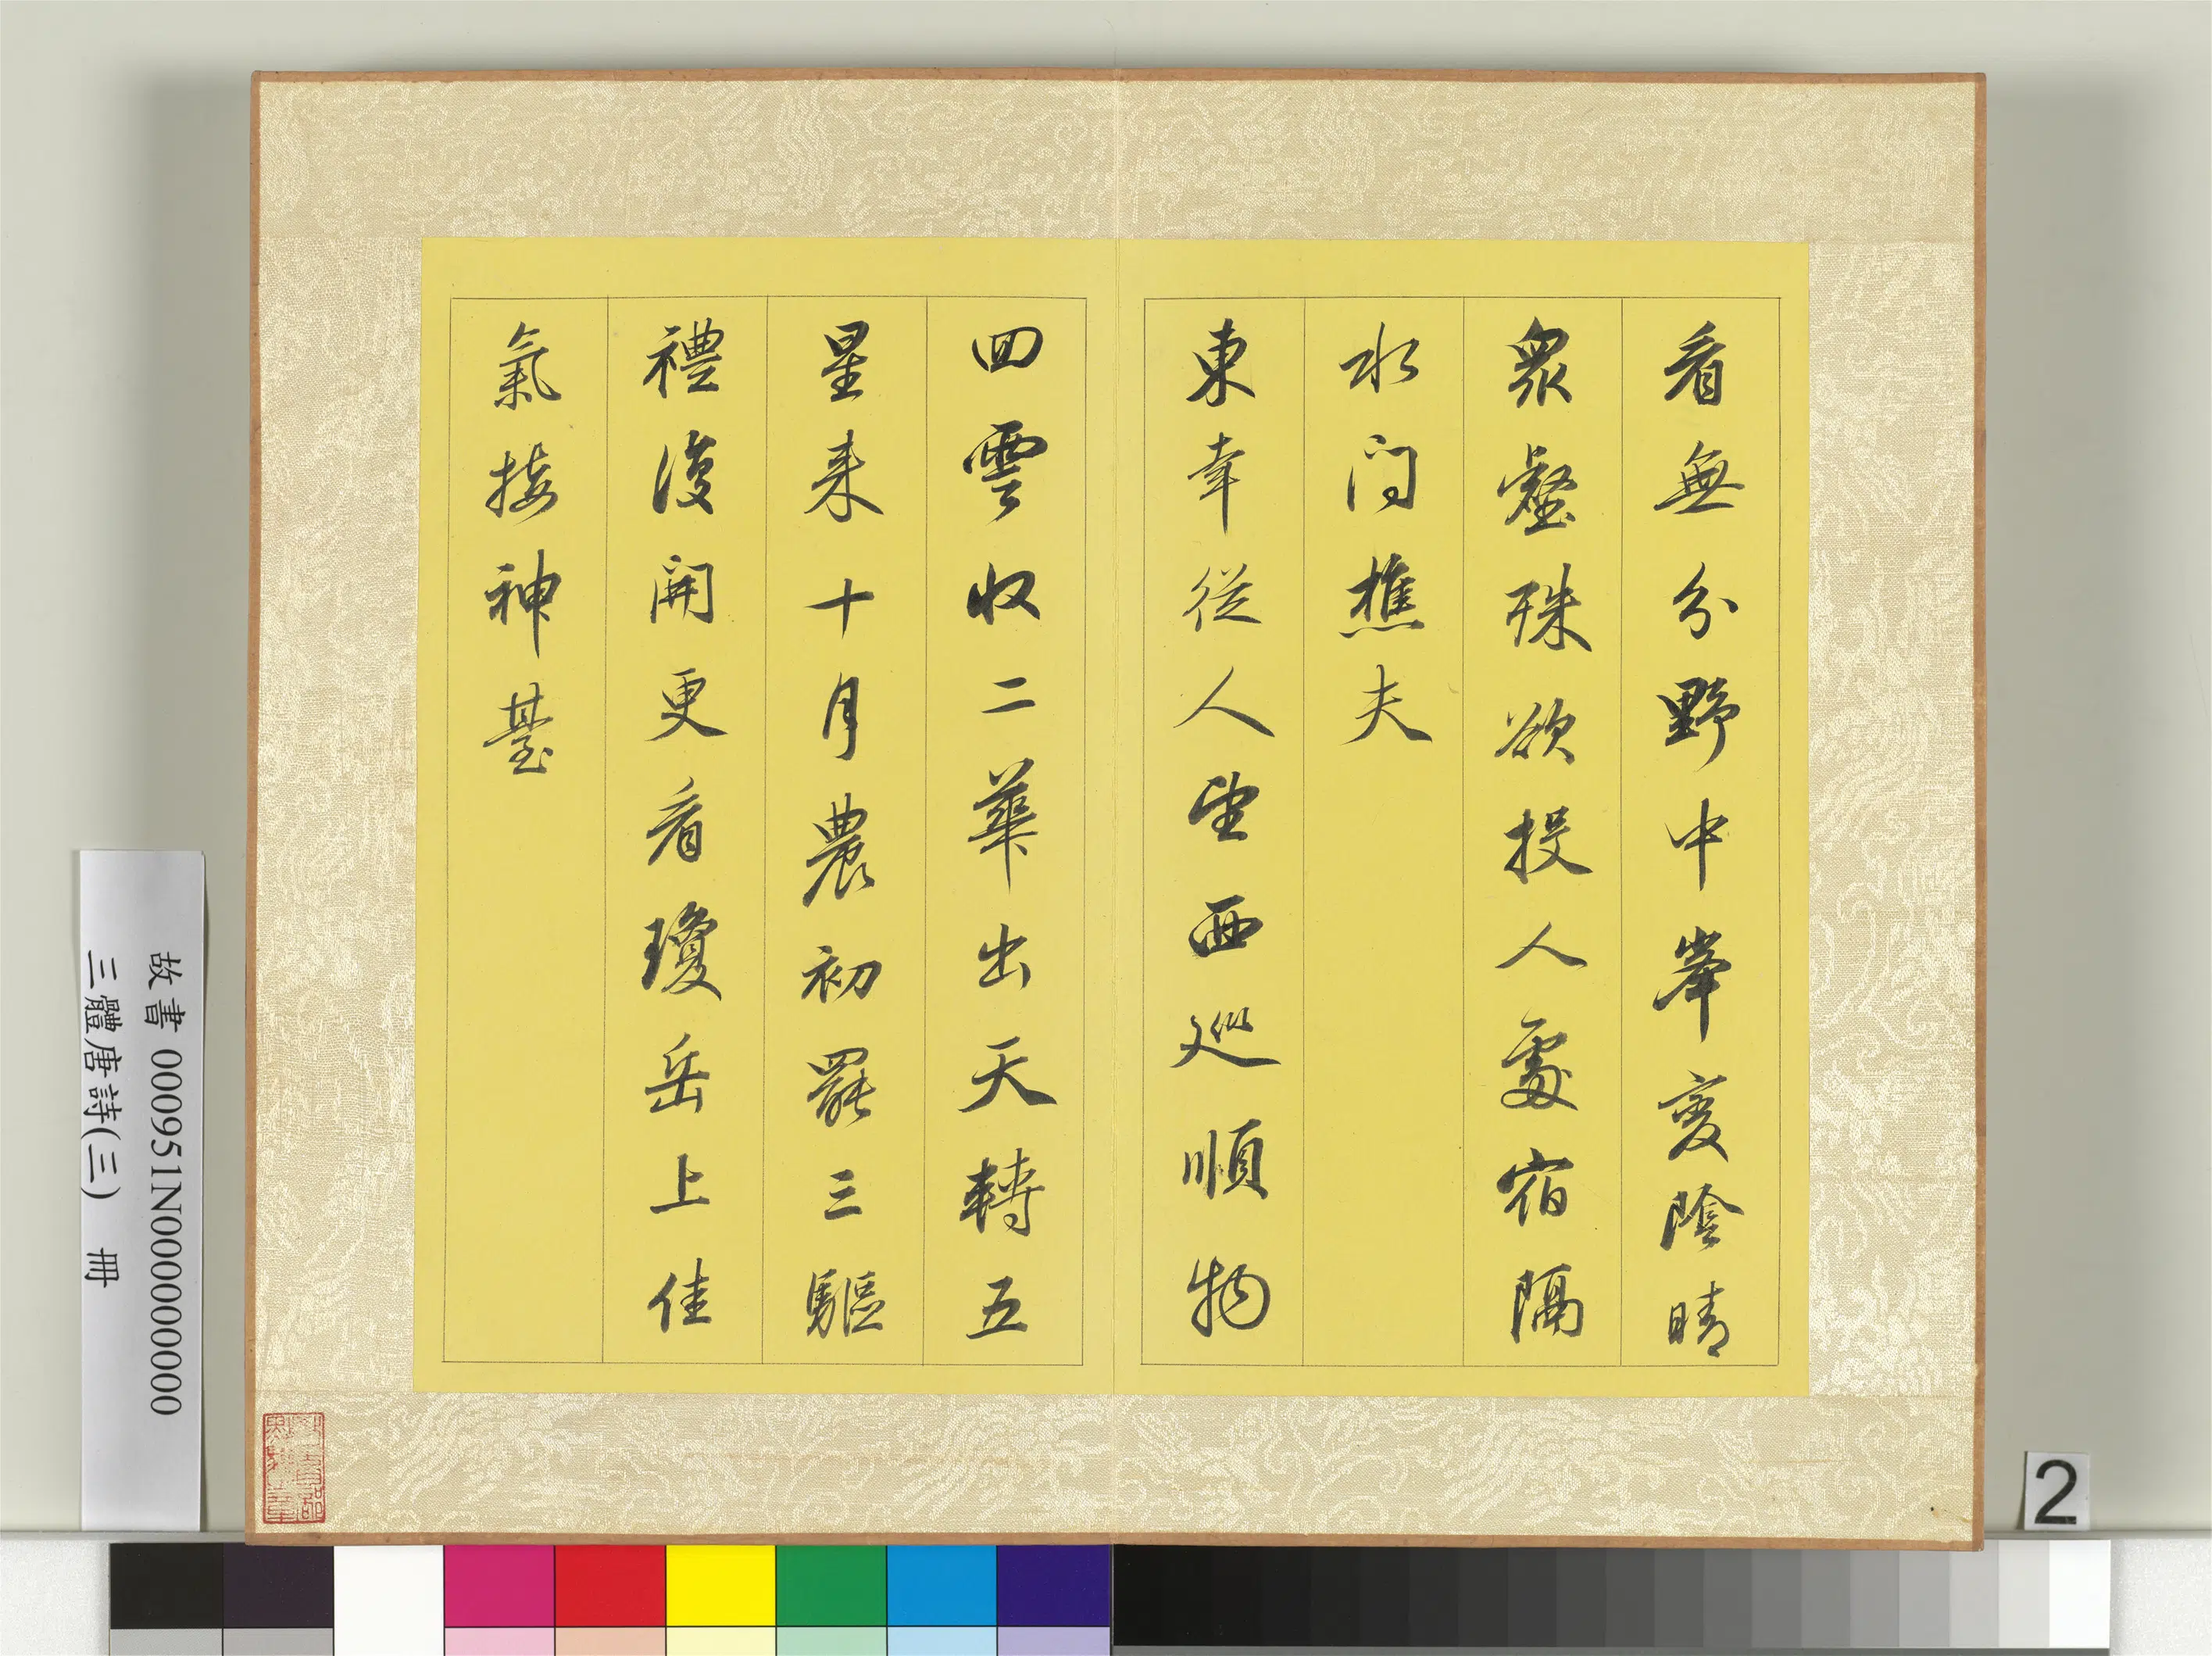 看無分野中峯變陰晴
眾壑殊欲投人處宿隔
水问樵夫
東幸從人望西巡順物
回雲收二華出天轉五
星来十月農初罷三驅
禮復開更看瓊岳上佳
氣接神臺
故書 000951N000000000
三體唐詩(三) 冊
2